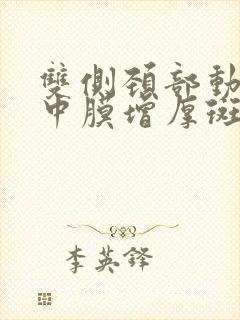 雙側頚部動
中膜增厚斑
李英鋒